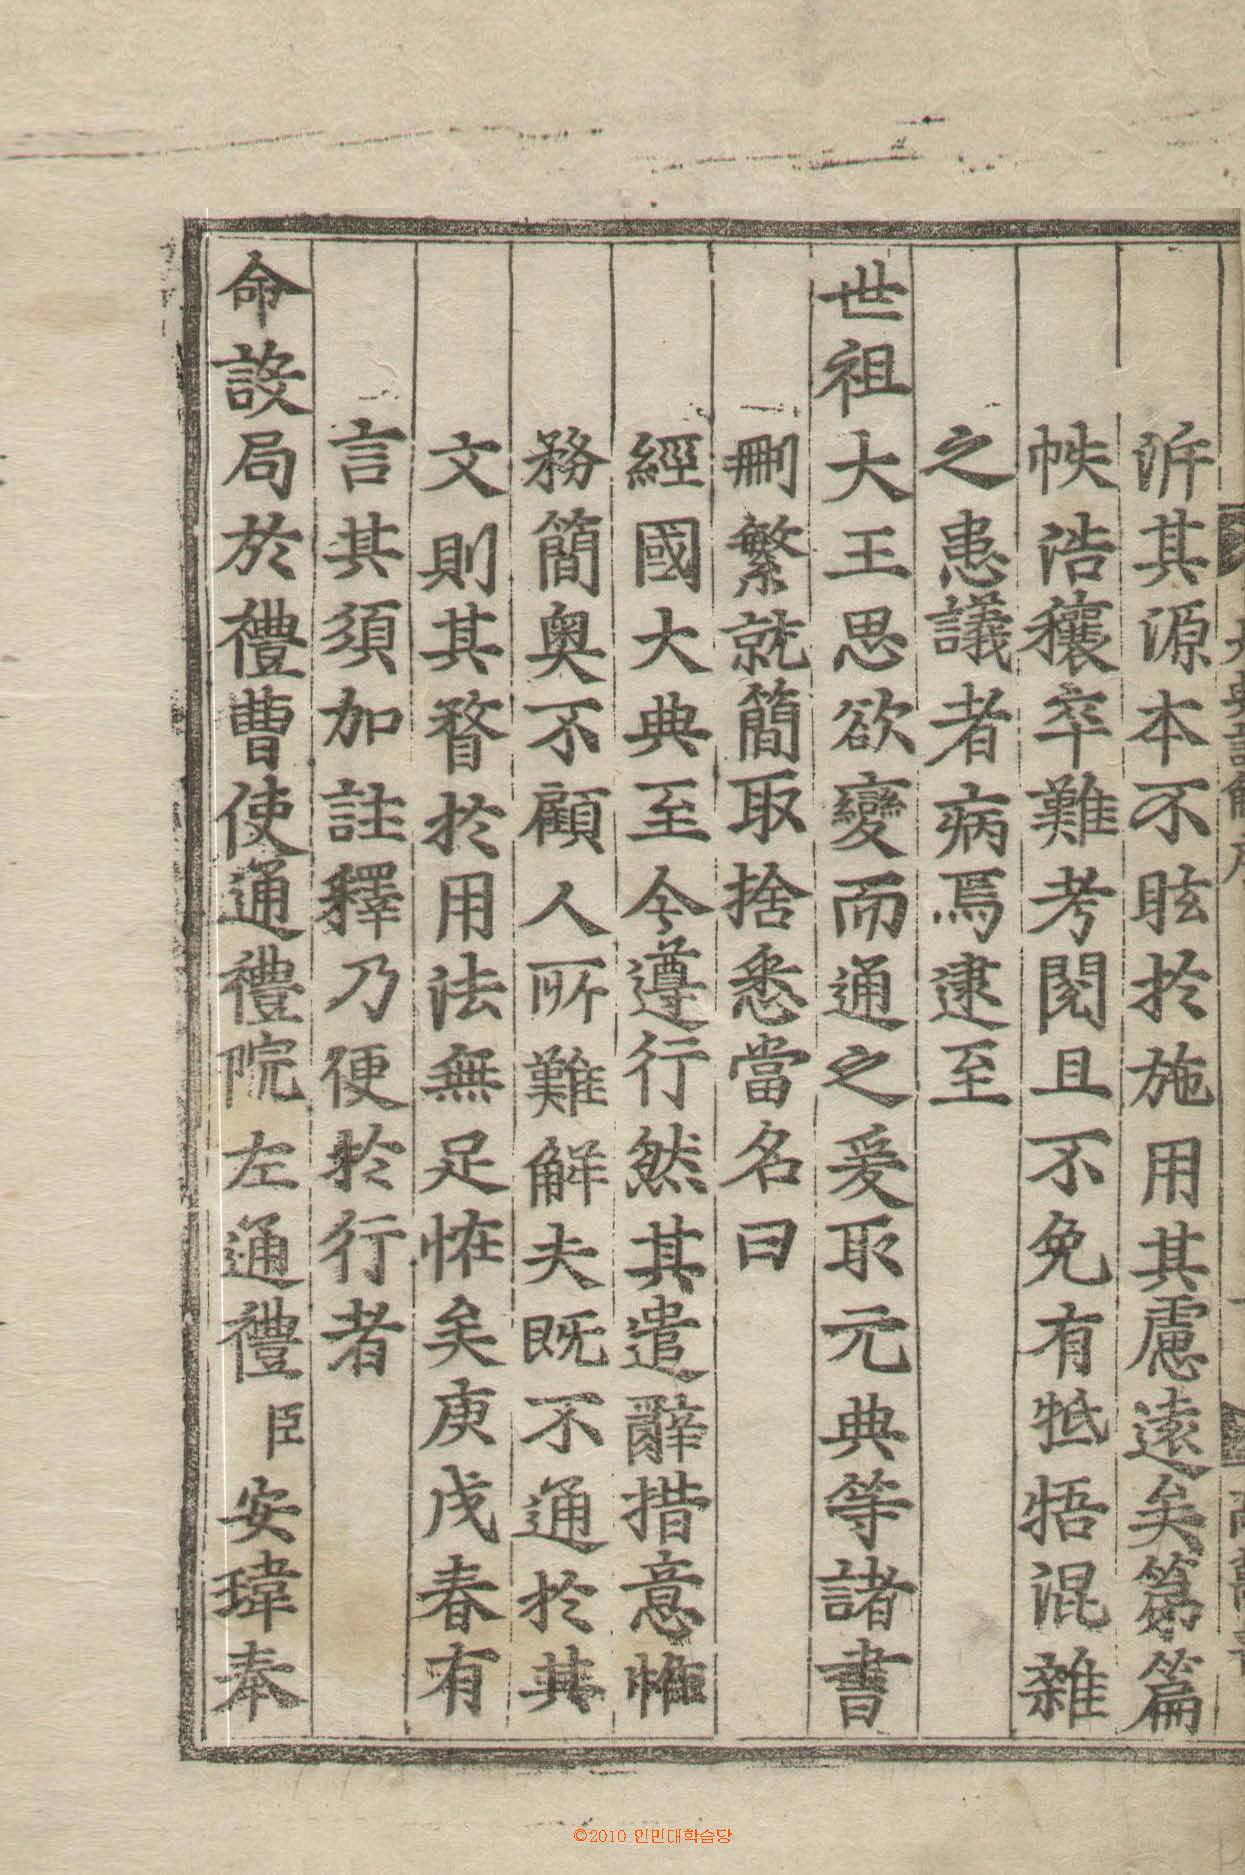 泝其源本不眩於施用其慮遠矣第篇
帙浩穰卒難考閱且不免有牴牾混雜
之患議者病焉逮至
世祖大王思欲變而通之爰取元典等諸書
刪繁就簡取捨悉當名曰
經國大典至今遵行然其遣辭措意惟
務簡奧不顧人所難解夫旣不通於其
文則其瞀於用法無足怪矣庚戌春有
言其須加註釋乃便於行者
命設局於禮曹使通禮院左通禮臣安瑋奉
©2010 인민대학습당